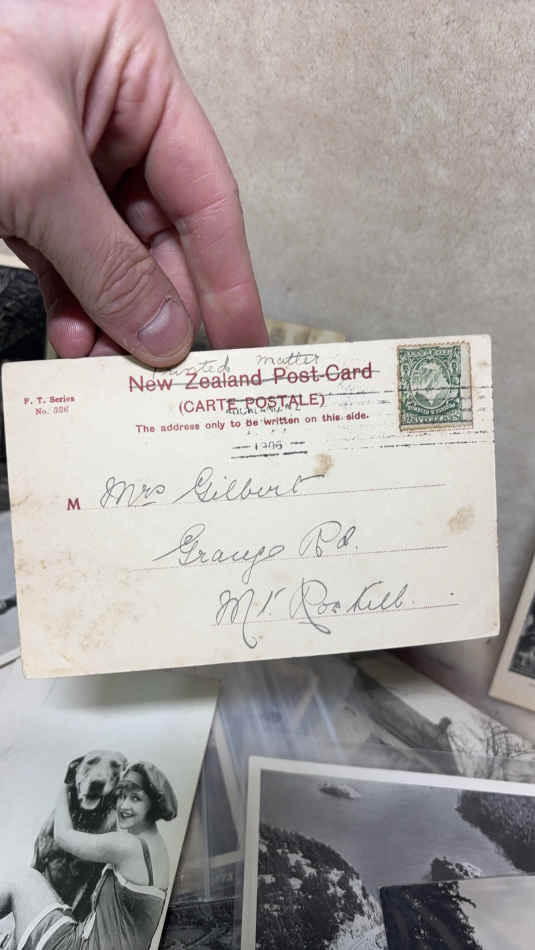 Printed Matter
New Zealand Post-Card
(CARTE POSTALE)
The address only to be written on this side.
F. T. Series
No. 326
AUCKLAND N Z
1906
M Mrs Gilbert
Grange Rd.
Mt. Roskill.